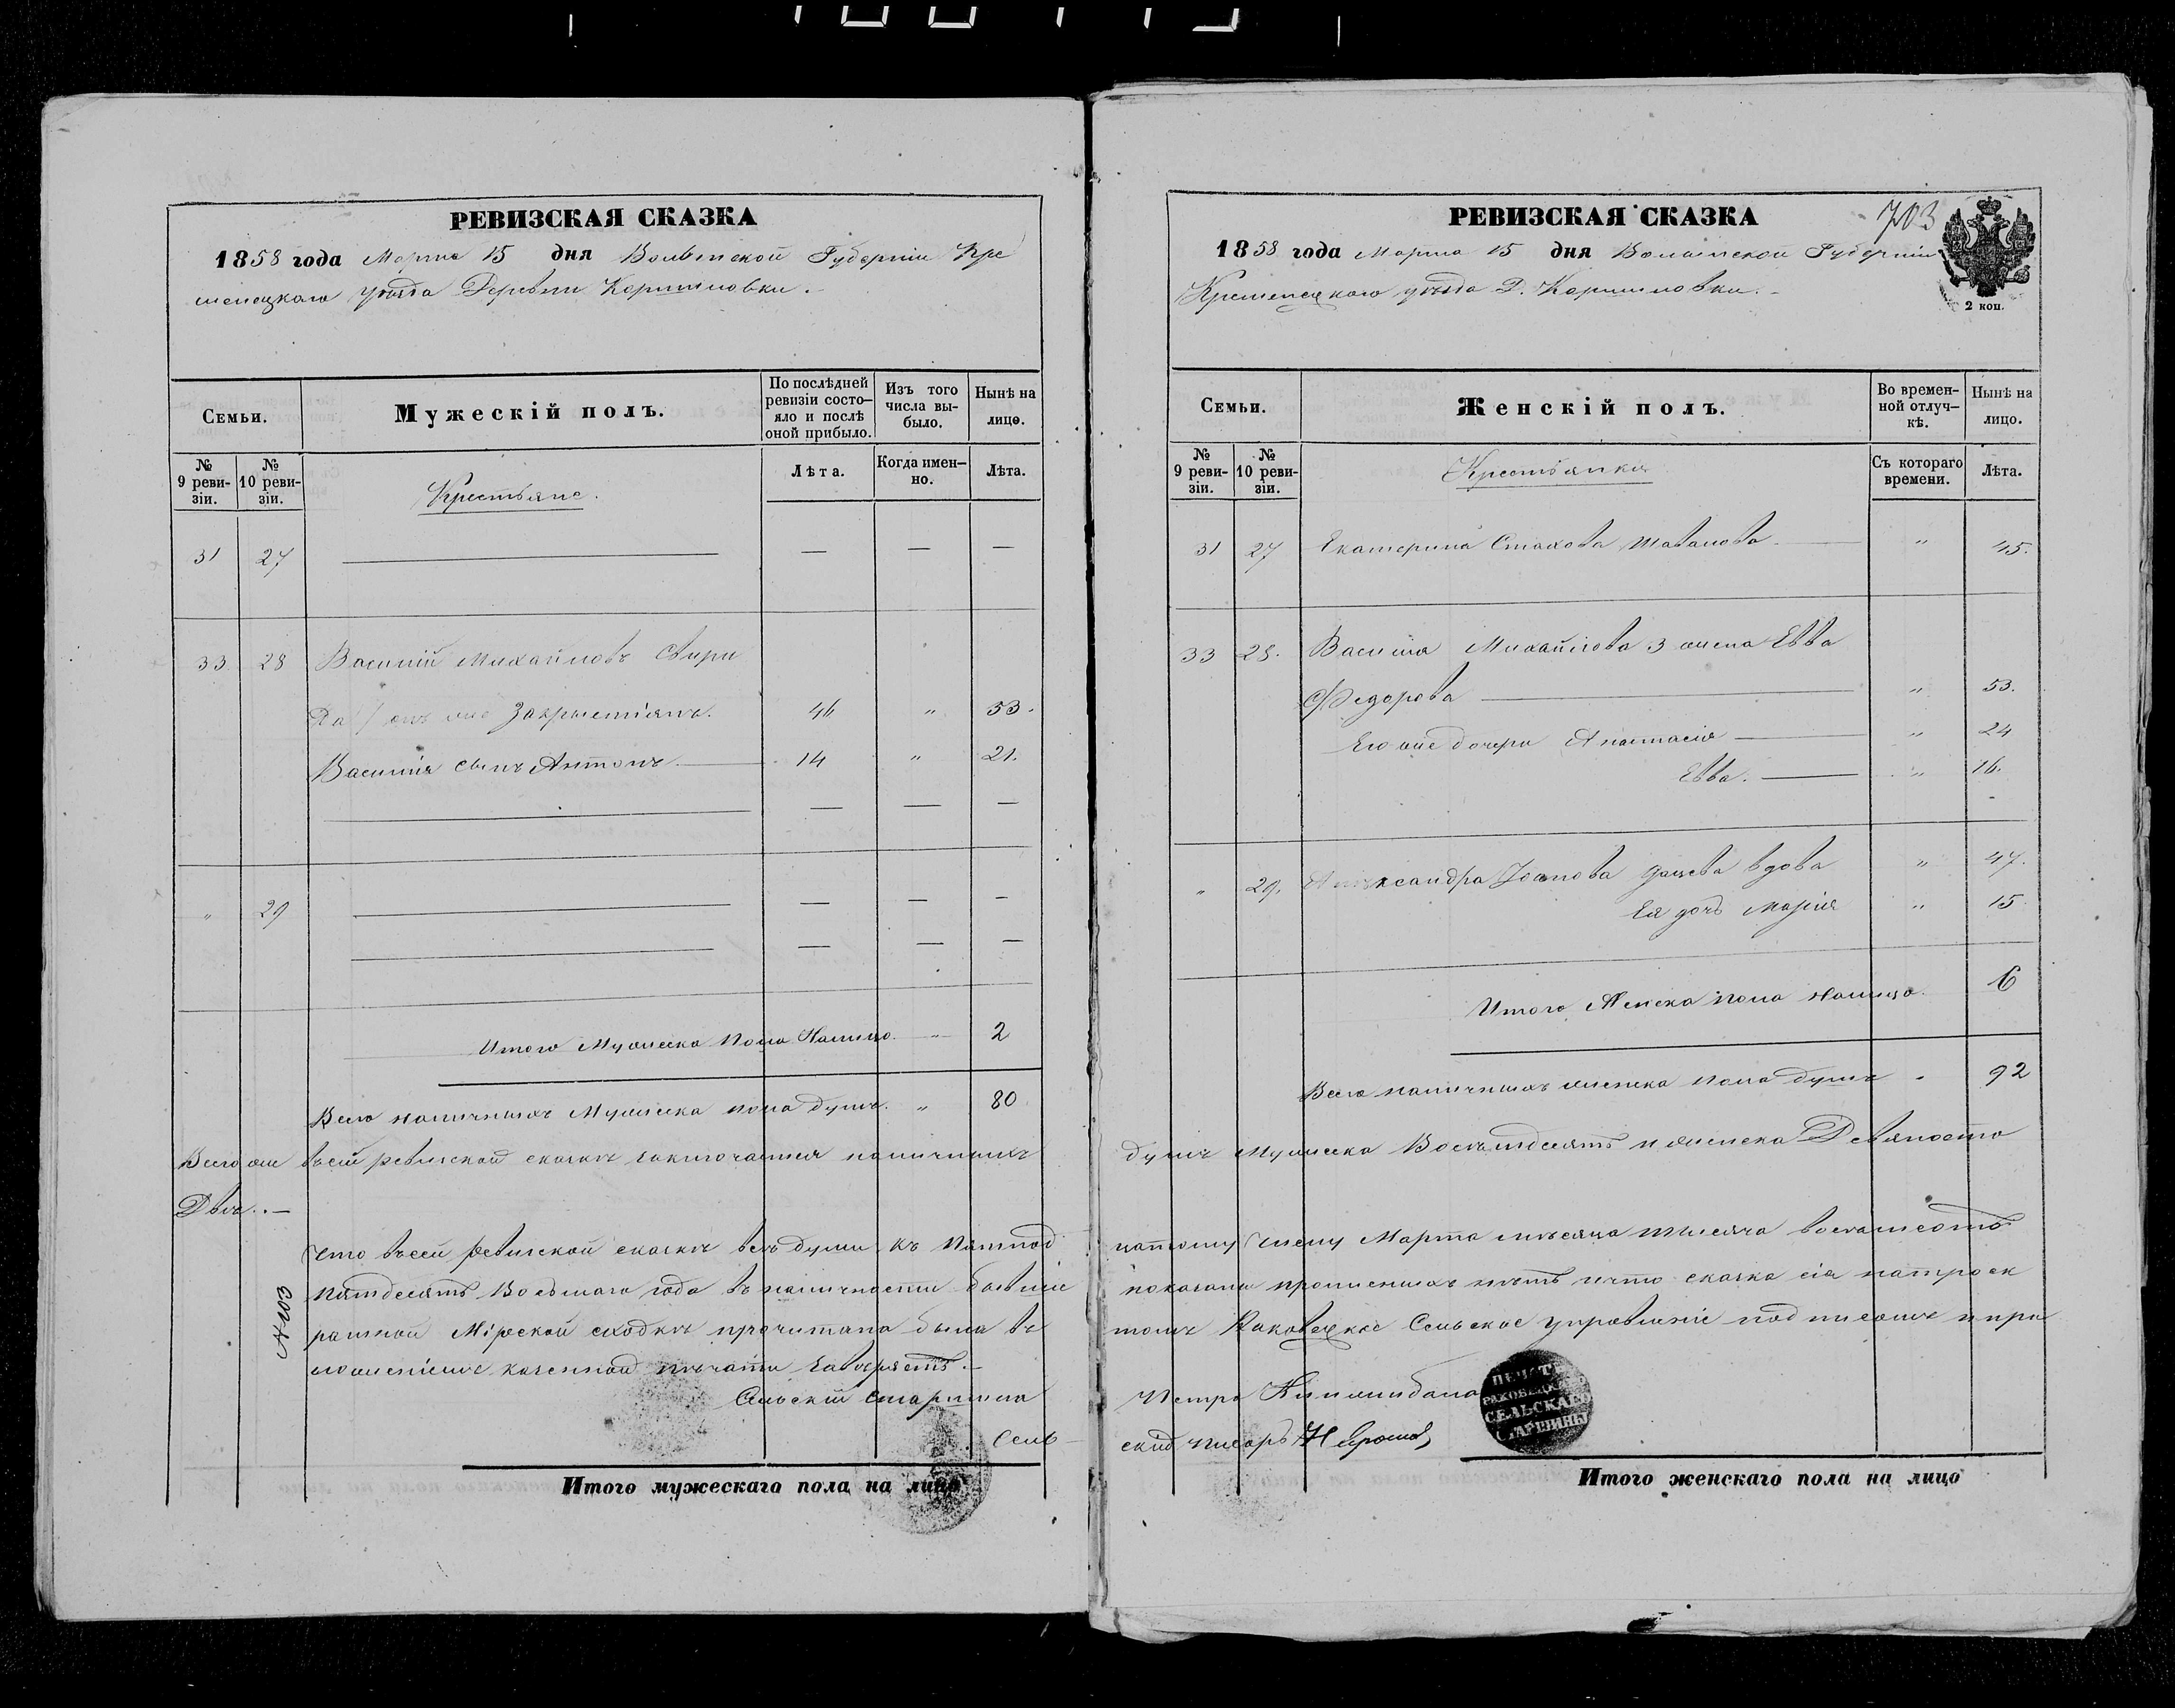 РЕВИЗСКАЯ СКАЗКА
1858 года Марта 15 дня Волынской Губерніи Кре
менецкаго уѣзда Деревни Коршиловки.
Семьи.
Мужескій полъ.
По послѣдней ревизіи состояло и послѣ оной прибыло.
Изъ того числа выбыло.
Нынѣ на лицо.
№ 9 ревизіи.
№ 10 ревизіи.
Крестьяне.
Лѣта.
Когда именно.
Лѣта.
31 27 — — —
33 28 Василій Михайловъ Свири
да / онъ же Захрыстіянъ. 46 " 53.
Василія сынъ Антонъ. 14 " 21.
— — —
" 29 — — —
— — —
Итого Мужеска пола Налицо. " 2
Всего наличныхъ Мужеска пола душъ. " 80
Всего же въсей ревизской сказкѣ заключается наличныхъ
Двѣ..—
Что въсей ревизской сказкѣ всѣ души къ пятнад
пятдесятъ Восьмаго года въ наличности бывшіе
ратной Мірской сходкѣ прочитана была въ
ложеніемъ казенной печати завѣряетъ.—
Сельскій Старшина
Сель
Итого мужескаго пола на лицо
РЕВИЗСКАЯ СКАЗКА
703
1858 года Марта 15 дня Волынской Губерніи
Кременецкаго уѣзда Д. Коршиловки.
2 коп.
Семьи.
Женскій полъ.
Во временной отлучкѣ.
Нынѣ на лицо.
№ 9 ревизіи.
№ 10 ревизіи.
Крестьянки
Съ котораго времени.
Лѣта.
31 27 Екатерина Стахова " 45.
33 28. Василія Михайлова 3 жена Евва
Федорова " 53.
Его же дочери Анастасія " 24
Евва. " 16.
" 29. Александра Іоанова вдова " 47.
Ея дочь Марія " 15
Итого Женска пола налицо. 6
Всего наличныхъ женска пола душъ " 92
душъ Мужеска Восемдесятъ и женска Девяносто
цатому числу Марта мѣсяца тысяча восемьсотъ
показаны прописныхъ нѣтъ и что сказка сія натроек
томъ Раковецкое Сельское управленіе подписомъ и при
Петро
скій писарь
ПЕЧАТЬ
РАКОВЕЦКАГО
СЕЛЬСКАГО
СТАРШИНЫ
Итого женскаго пола на лицо